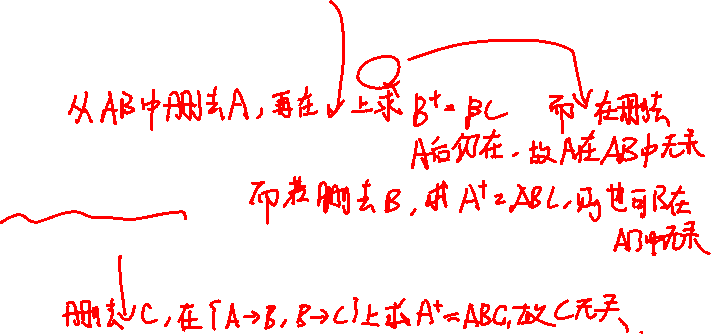 从AB中删去A，再在 上求 B⁺=BC 而 在删去
A后仍在，故A在AB中无关
而若删去B，求A⁺=ABC，则也可B在
AB中无关
删去C，在{A→B，B→C}上求A⁺=ABC，故C无关、